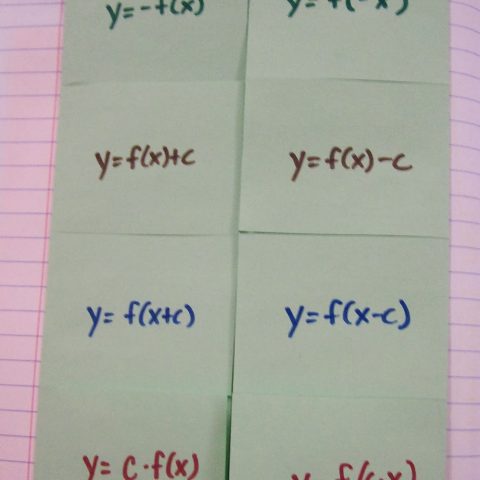 y=-f(x)
y=f(-x)
y=f(x)+c
y=f(x)-c
y=f(x+c)
y=f(x-c)
y=c·f(x)
y=f(c·x)